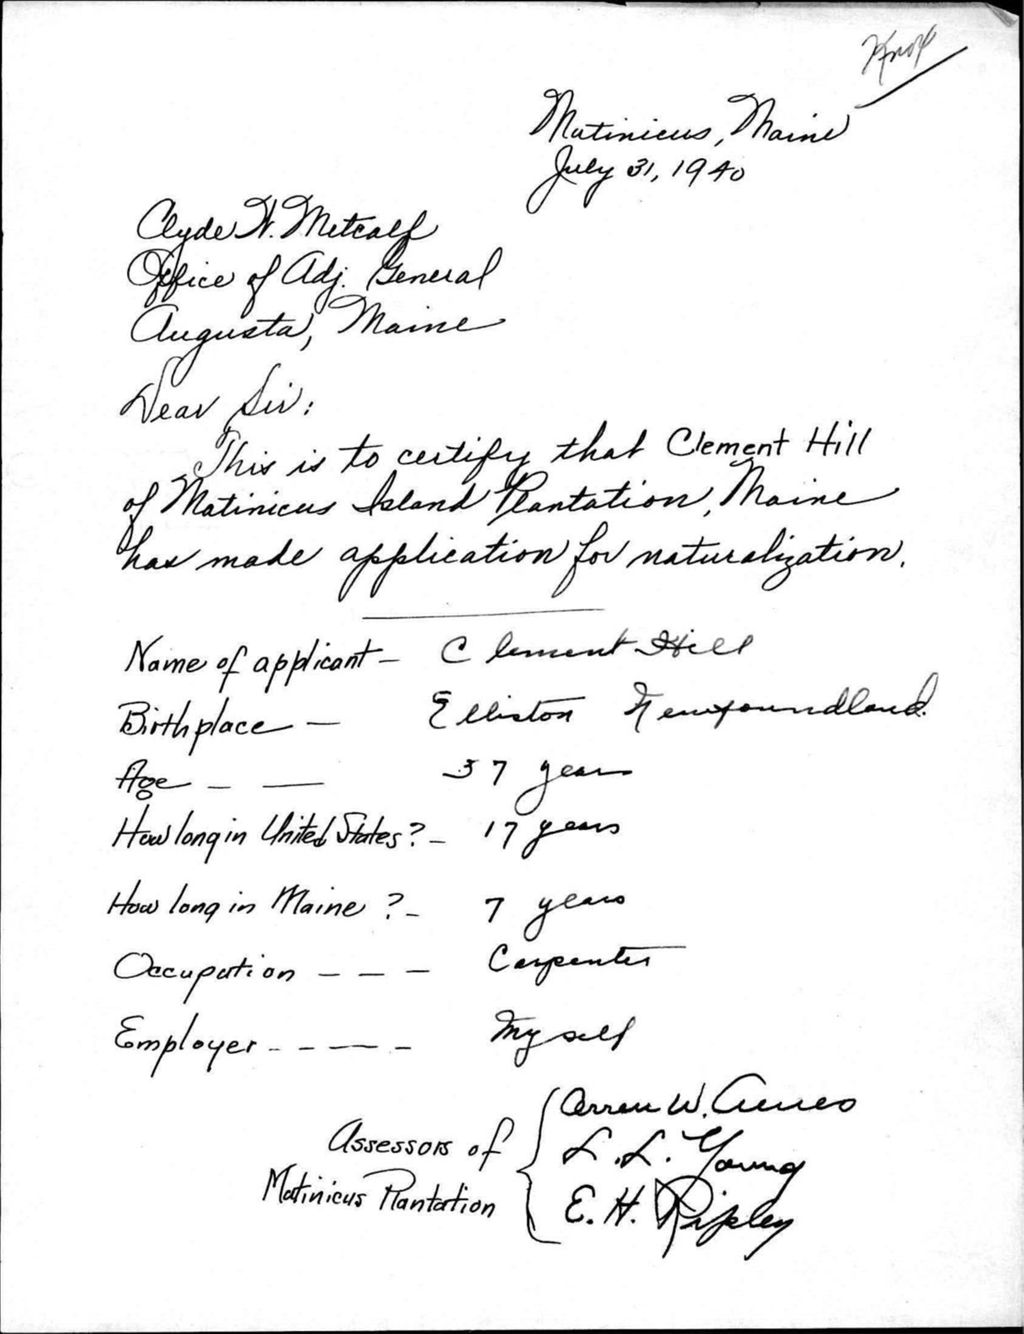 Knox
Matinicus, Maine
July 31, 1940
Clyde N. Metcalf
Office of Adj. General
Augusta, Maine
Dear Sir:
This is to certify that Clement Hill
of Matinicus Island Plantation, Maine
has made application for naturalization.
Name of applicant - Clement Hill
Birthplace - Elliston Newfoundland.
Age - - 37 years
How long in United States? - 17 years
How long in Maine? - 7 years
Occupation - - - Carpenter
Employer - - - - - My self
Orren W. Ames
Assessors of L. L. Young
Matinicus Plantation E. H. Ripley